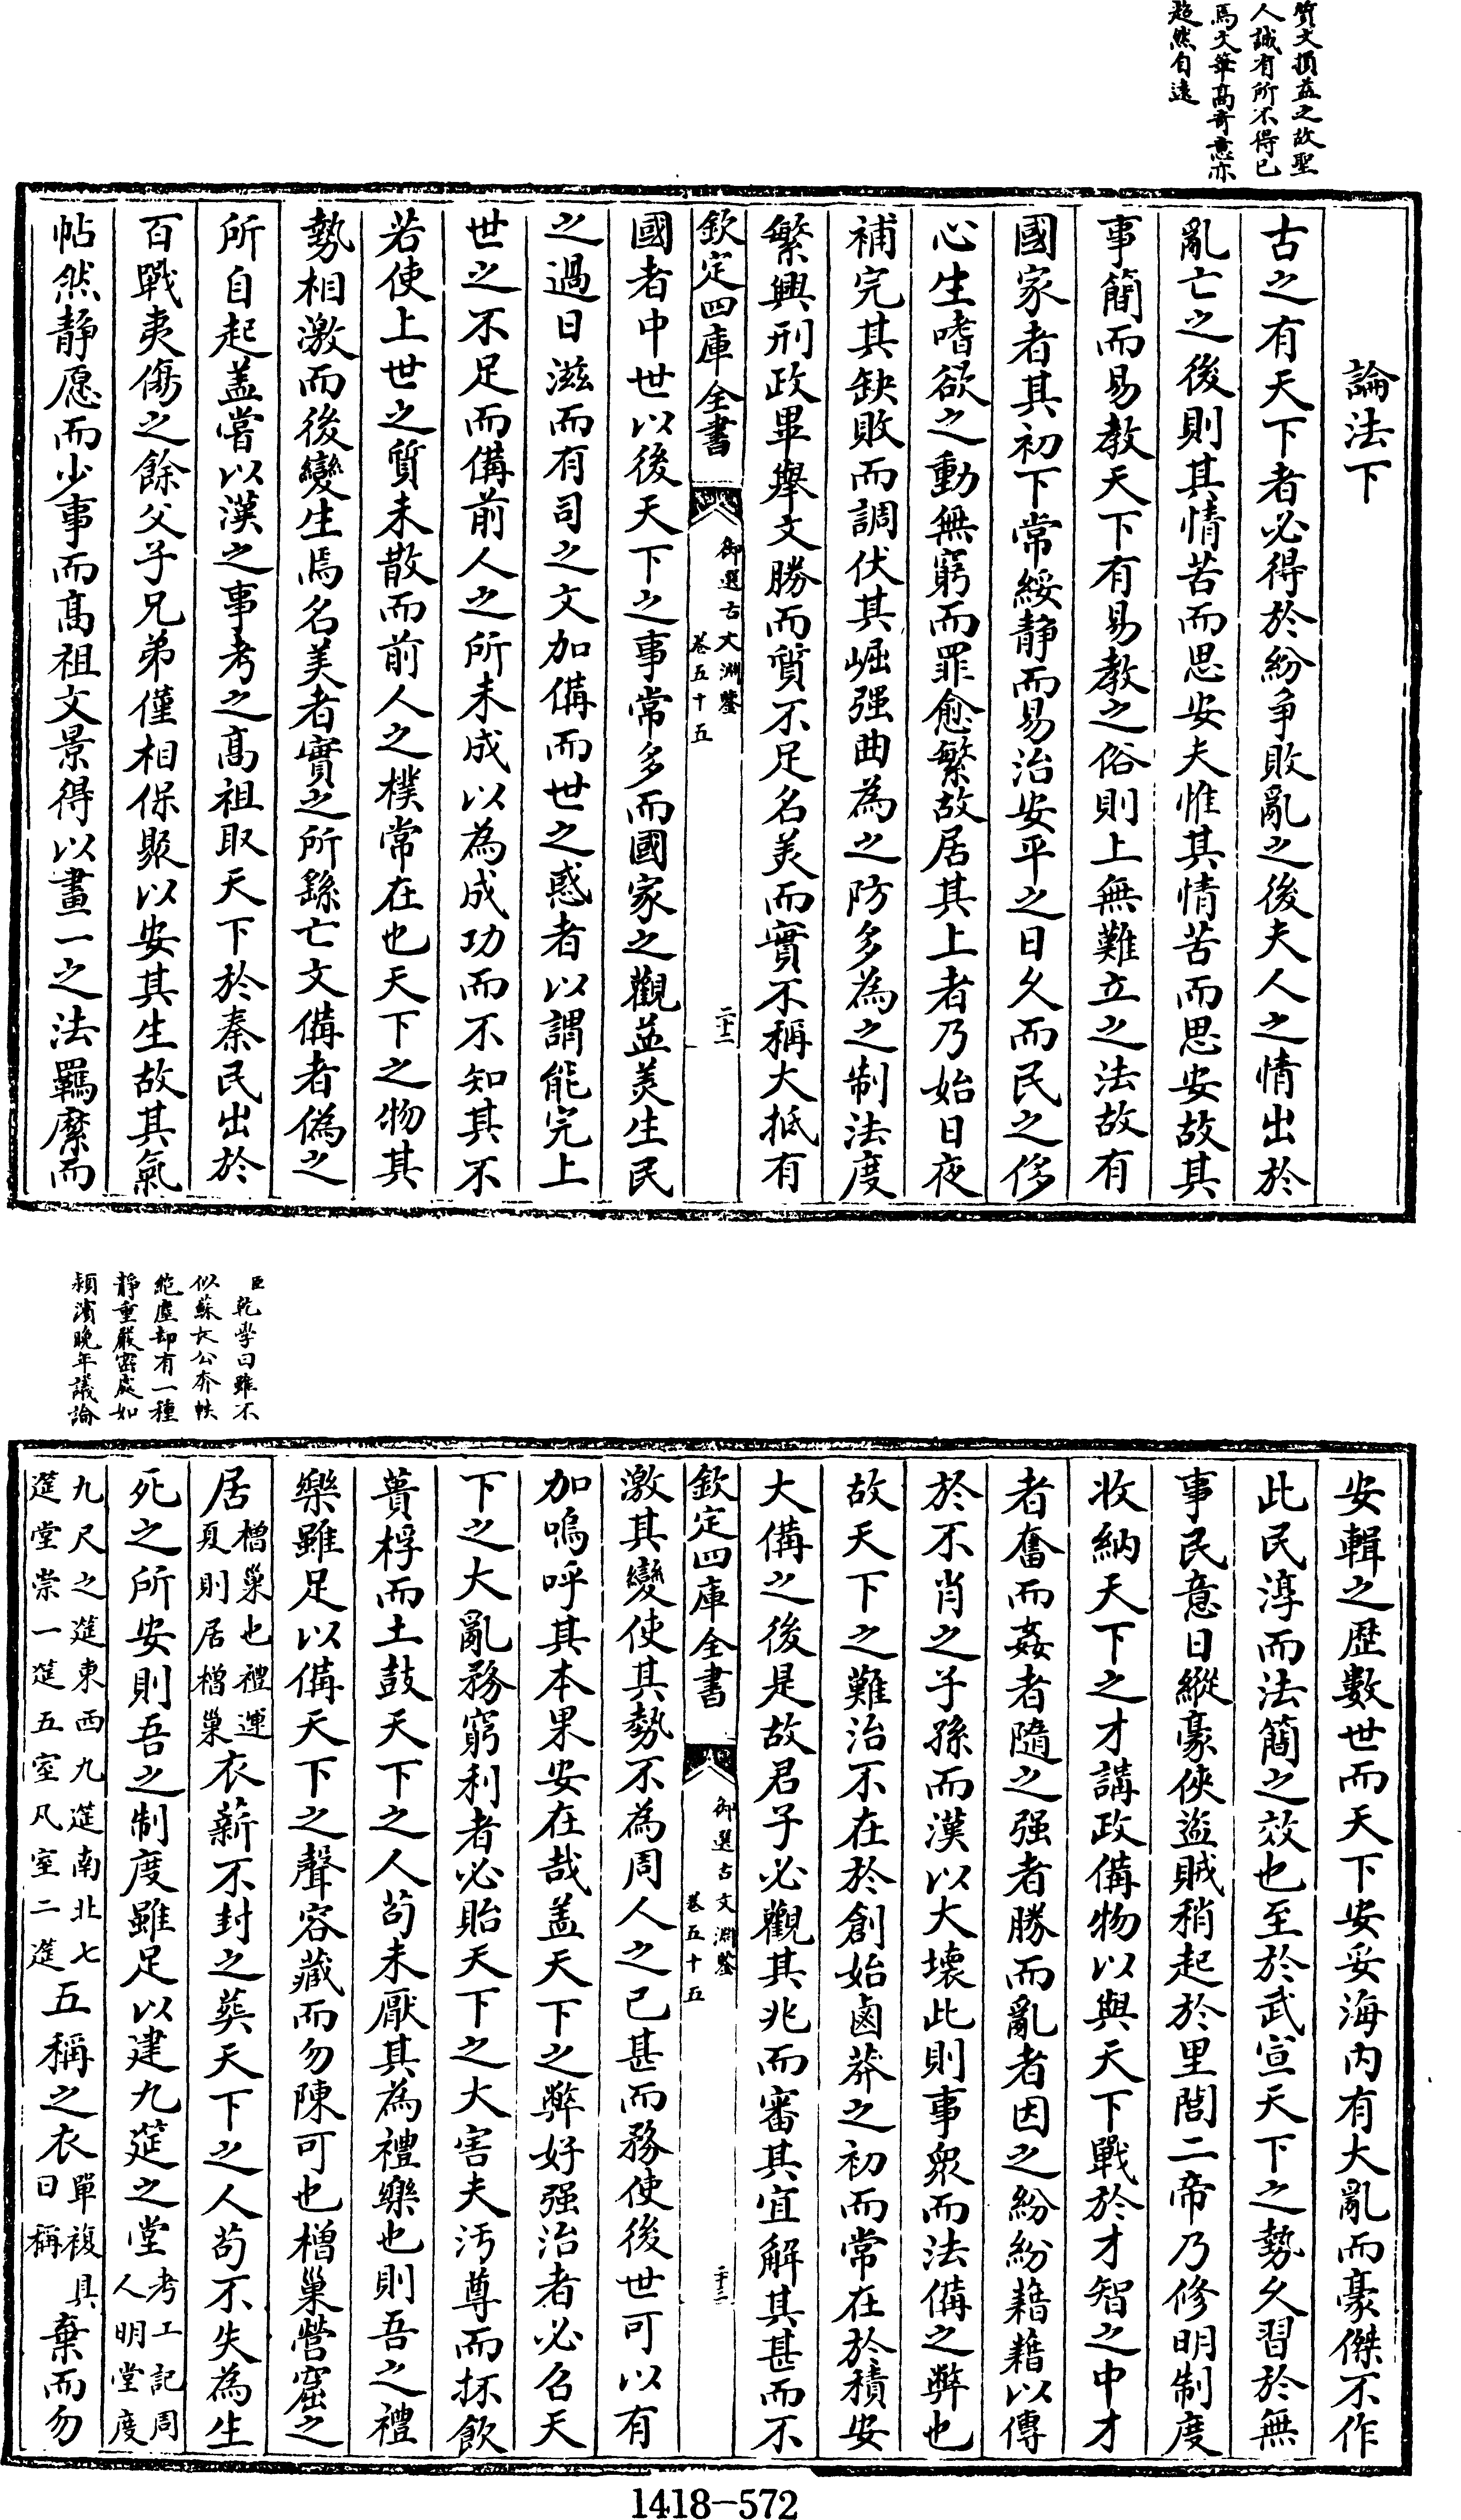 質文損益之故聖
人誠有所不得已
焉文筆高奇意亦
超然自遠
論法下
古之有天下者必得於紛爭敗亂之後夫人之情出於
亂亡之後則其情苦而思安夫惟其情苦而思安故其
事簡而易教天下有易教之俗則上無難立之法故有
國家者其初下常綏靜而易治安平之日久而民之侈
心生嗜欲之動無窮而罪愈繁故居其上者乃始日夜
補完其缺敗而調伏其崛强曲為之防多為之制法度
繁興刑政畢舉文勝而質不足名美而實不稱大抵有
欽定四庫全書
御選古文淵鑒
卷五十五
二十二
國者中世以後天下之事常多而國家之觀益美生民
之過日滋而有司之文加備而世之惑者以謂能完上
世之不足而備前人之所未成以為成功而不知其不
若使上世之質未散而前人之樸常在也天下之物其
勢相激而後變生焉名美者實之所繇亡文備者偽之
所自起盖嘗以漢之事考之髙祖取天下於秦民出於
百戰夷傷之餘父子兄弟僅相保聚以安其生故其氣
帖然靜愿而少事而髙祖文景得以畫一之法羈縻而
臣乾學曰雖不
似蘇長公奔軼
絶塵却有一種
靜重嚴密處如
潁濱晚年議論
安輯之歴數世而天下安妥海内有大亂而豪傑不作
此民淳而法簡之效也至於武宣天下之勢久習於無
事民意日縱豪俠盜賊稍起於里閭二帝乃修明制度
收納天下之才講政備物以與天下戰於才智之中才
者奮而姦者隨之强者勝而亂者因之紛紛藉藉以傳
於不肖之子孫而漢以大壞此則事衆而法備之弊也
故天下之難治不在於創始鹵莽之初而常在於積安
大備之後是故君子必觀其兆而審其宜解其甚而不
欽定四庫全書
御選古文淵鑒
卷五十五
二十三
激其變使其勢不為周人之已甚而務使後世可以有
加嗚呼其本果安在哉盖天下之弊好强治者必召天
下之大亂務窮利者必貽天下之大害夫汚尊而抔飲
蕢桴而土鼓天下之人茍未厭其為禮樂也則吾之禮
樂雖足以備天下之聲容藏而勿陳可也橧巢營窟之
居橧巢也禮運夏則居橧巢衣薪不封之葬天下之人茍不失為生
死之所安則吾之制度雖足以建九筵之堂考工記周人明堂度
九尺之筵東西九筵南北七筵堂崇一筵五室凡室二筵五稱之衣單複具曰稱棄而勿
1418-572